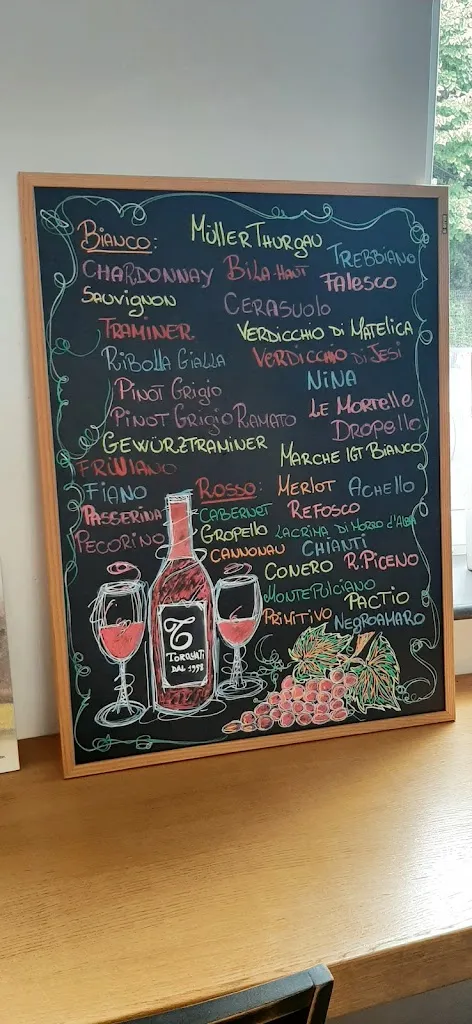 BIANCO:
MÜLLER THURGAU
TREBBIANO
CHARDONNAY
BILA-HAUT
FALESCO
SAUVIGNON
CERASUOLO
TRAMINER
VERDICCHIO DI MATELICA
RIBOLLA GIALLA
VERDICCHIO DI JESI
PINOT GRIGIO
NINA
PINOT GRIGIO RAMATO
LE MORTELLE
DROPELLO
GEWÜRZTRAMINER
MARCHE IGT BIANCO
FRIULANO
FIANO
PASSERINA
PECORINO
ROSSO:
MERLOT
ACHELLO
CABERNET
REFOSCO
GROPELLO
LACRIMA DI MORRO D'ALBA
CANNONAU
CHIANTI
CONERO
R. PICENO
MONTEPULCIANO
PACTIO
PRIMITIVO
NEGROAMARO
T
TORQUATI
DAL 1998